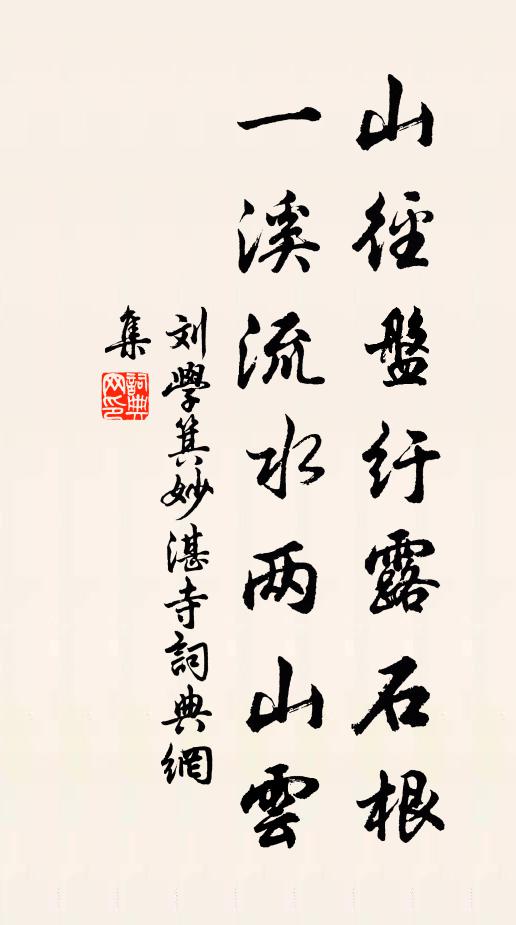 山徑盤紆露石根
一溪流水两山雲
刘學箕妙湛寺詞典網
集
詞典
网印